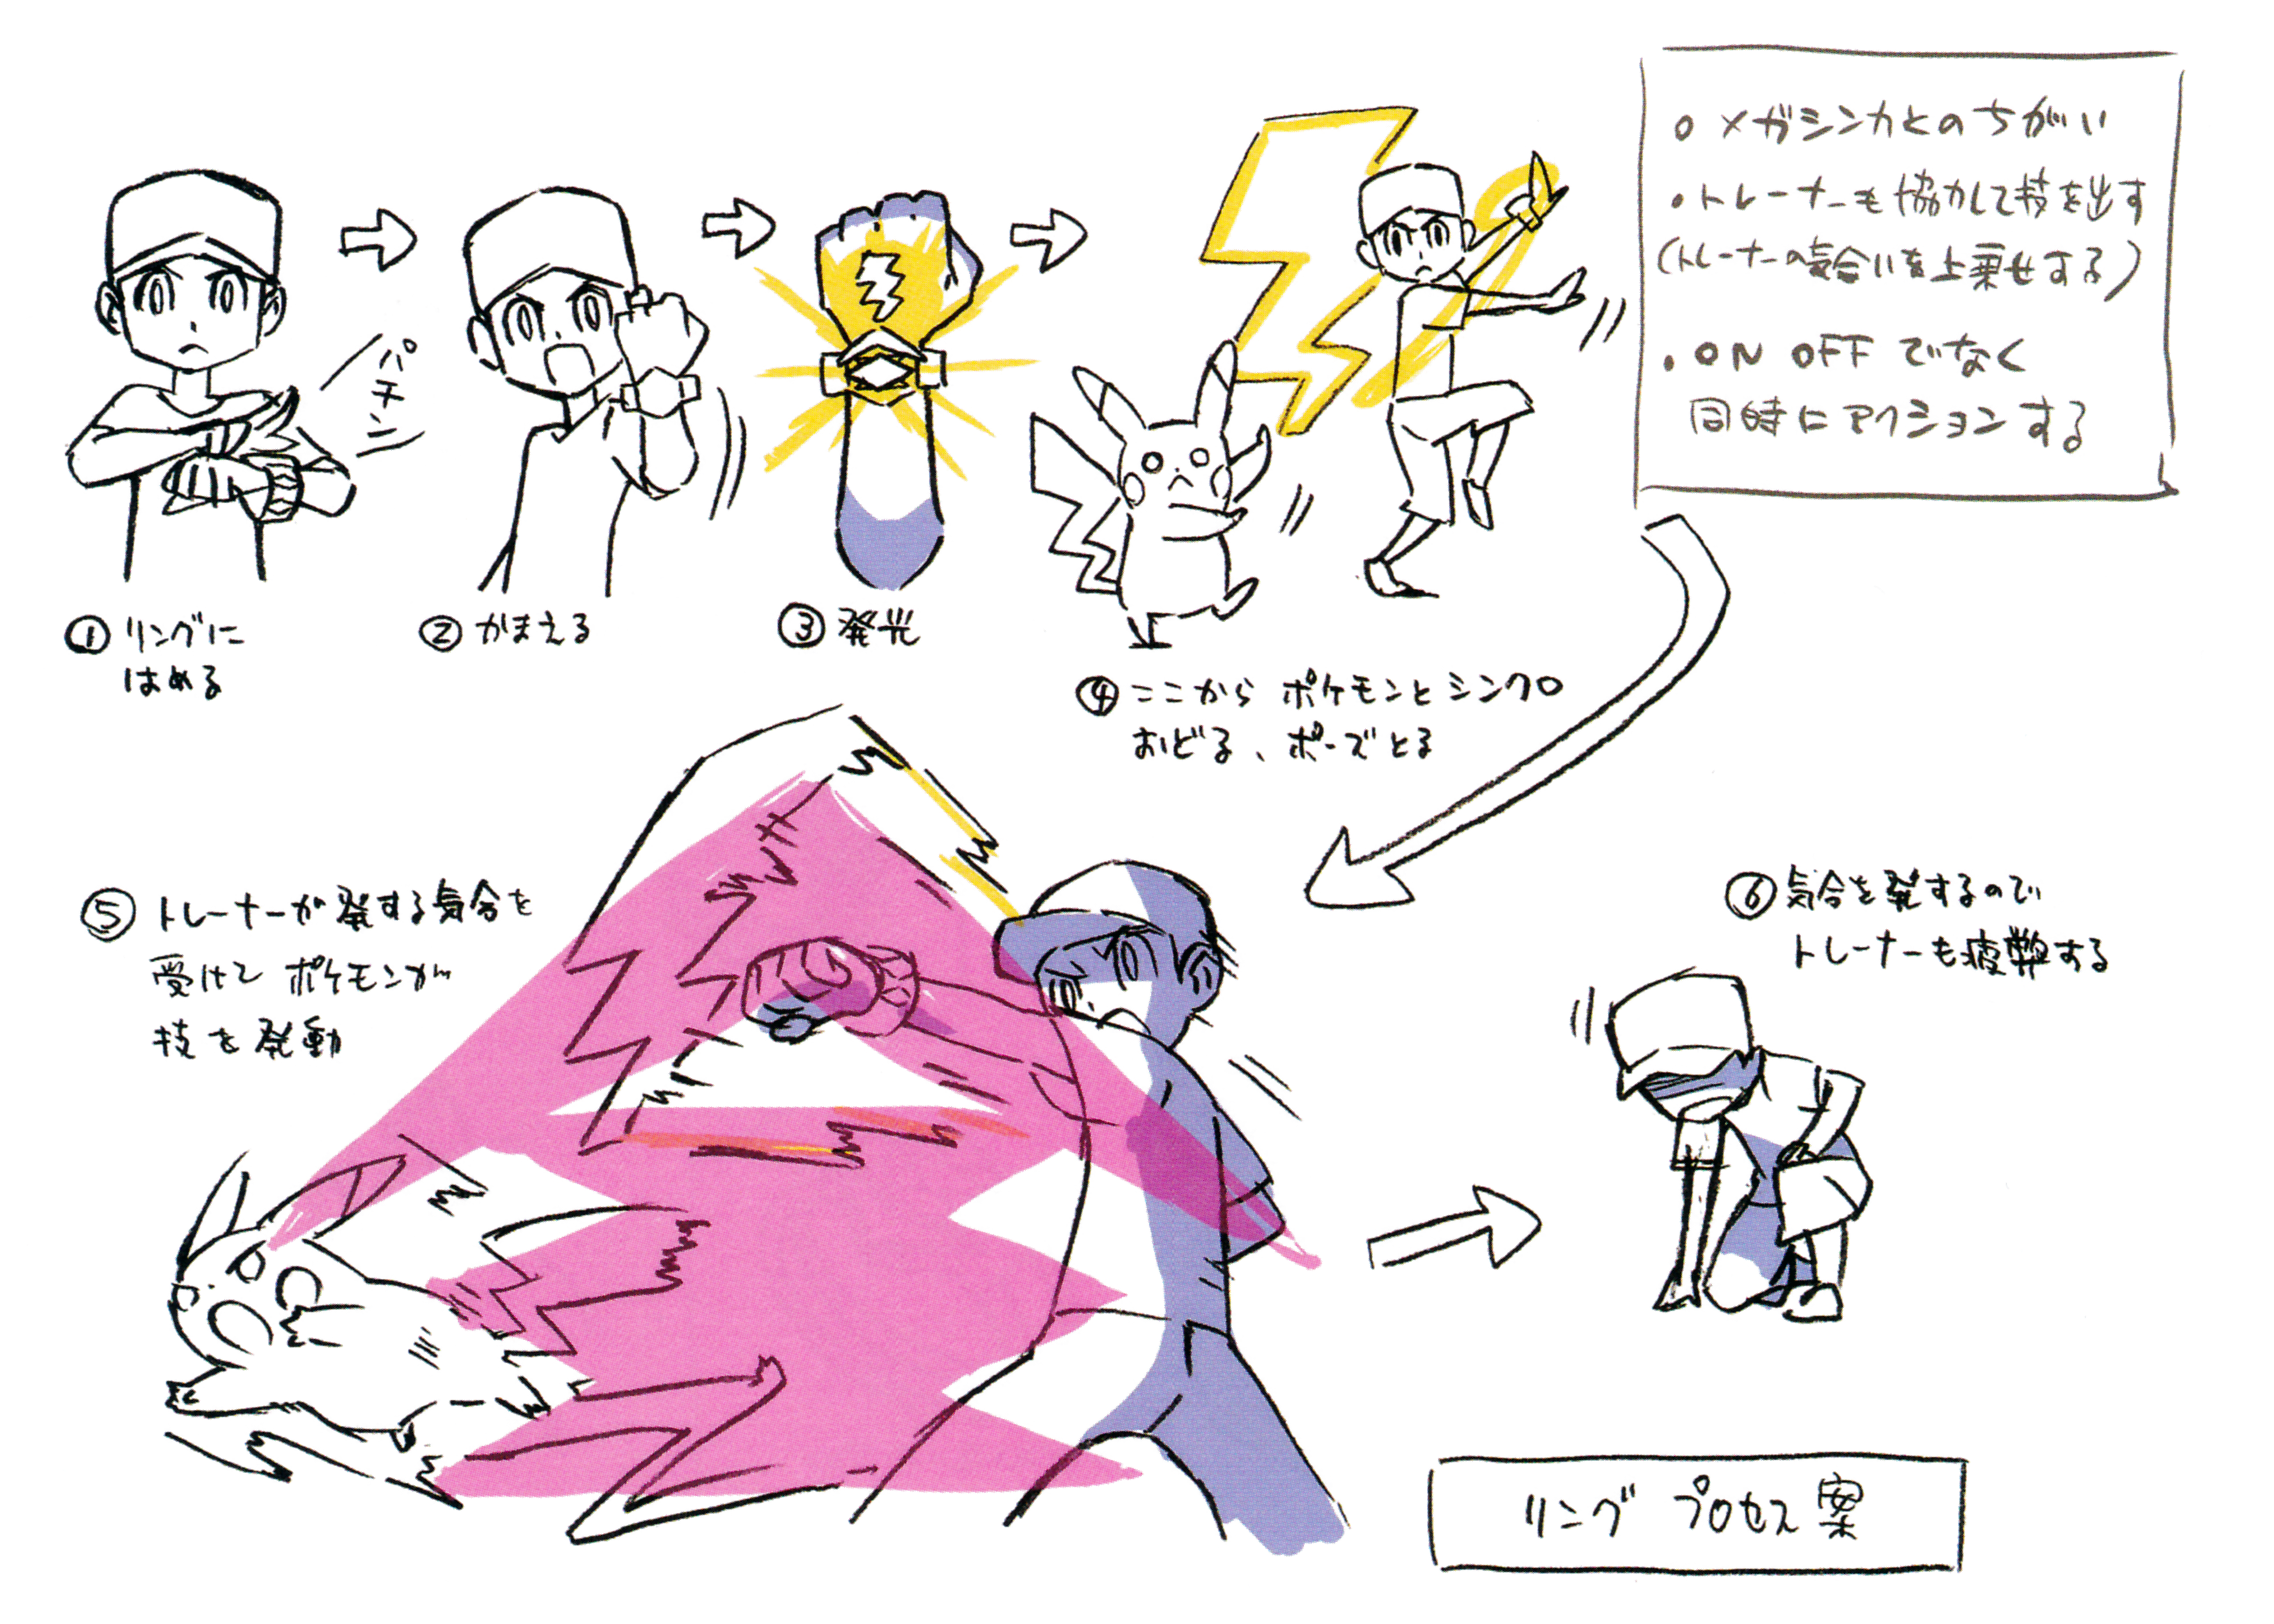 ○ メガシンカとのちがい
・トレーナーも協力して技を出す
(トレーナーの気合いを上乗せする)
・ON OFF でなく
同時にアクションする
パチン
① リングに
はめる
② かまえる
③ 発光
④ ここから ポケモンとシンクロ
おどる、ポーズとる
⑤ トレーナーが発する気合を
受けて ポケモンが
技を発動
⑥ 気合を発するので
トレーナーも疲弊する
リング プロセス案